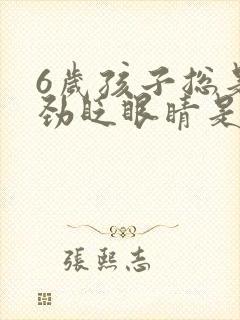 6歲孩子总是
劲眨眼睛是
張熙志